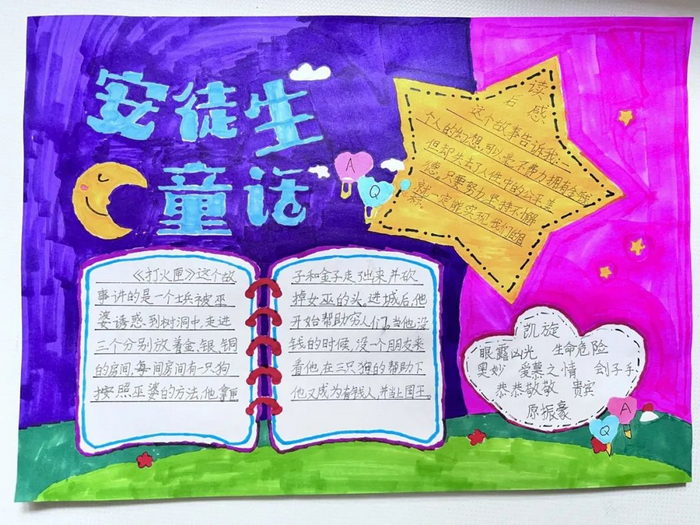 安徒生
童话
读后感
这个故事告诉我:一
个人的幻想可以毫不费力拥有金钱
但却失去了人性中的公平美
德,只要努力坚持不懈
就一定能实现我们的
A
Q
《打火匣》这个故
事讲的是一个士兵被巫
婆诱惑到树洞中,走进
三个分别放着金、银、铜
的房间,每间房间有一只狗
按照巫婆的方法,他拿匣
子和金子走了出来并砍
掉女巫的头,进城后,他
开始帮助穷人们,当他没
钱的时候,没一个朋友来
看他,在三只狗的帮助下
他又成为有钱人,并当上国王。
凯旋
眼露凶光 生命危险
奥妙 爱慕之情 刽子手
恭恭敬敬 贵宾
原振豪
A
Q